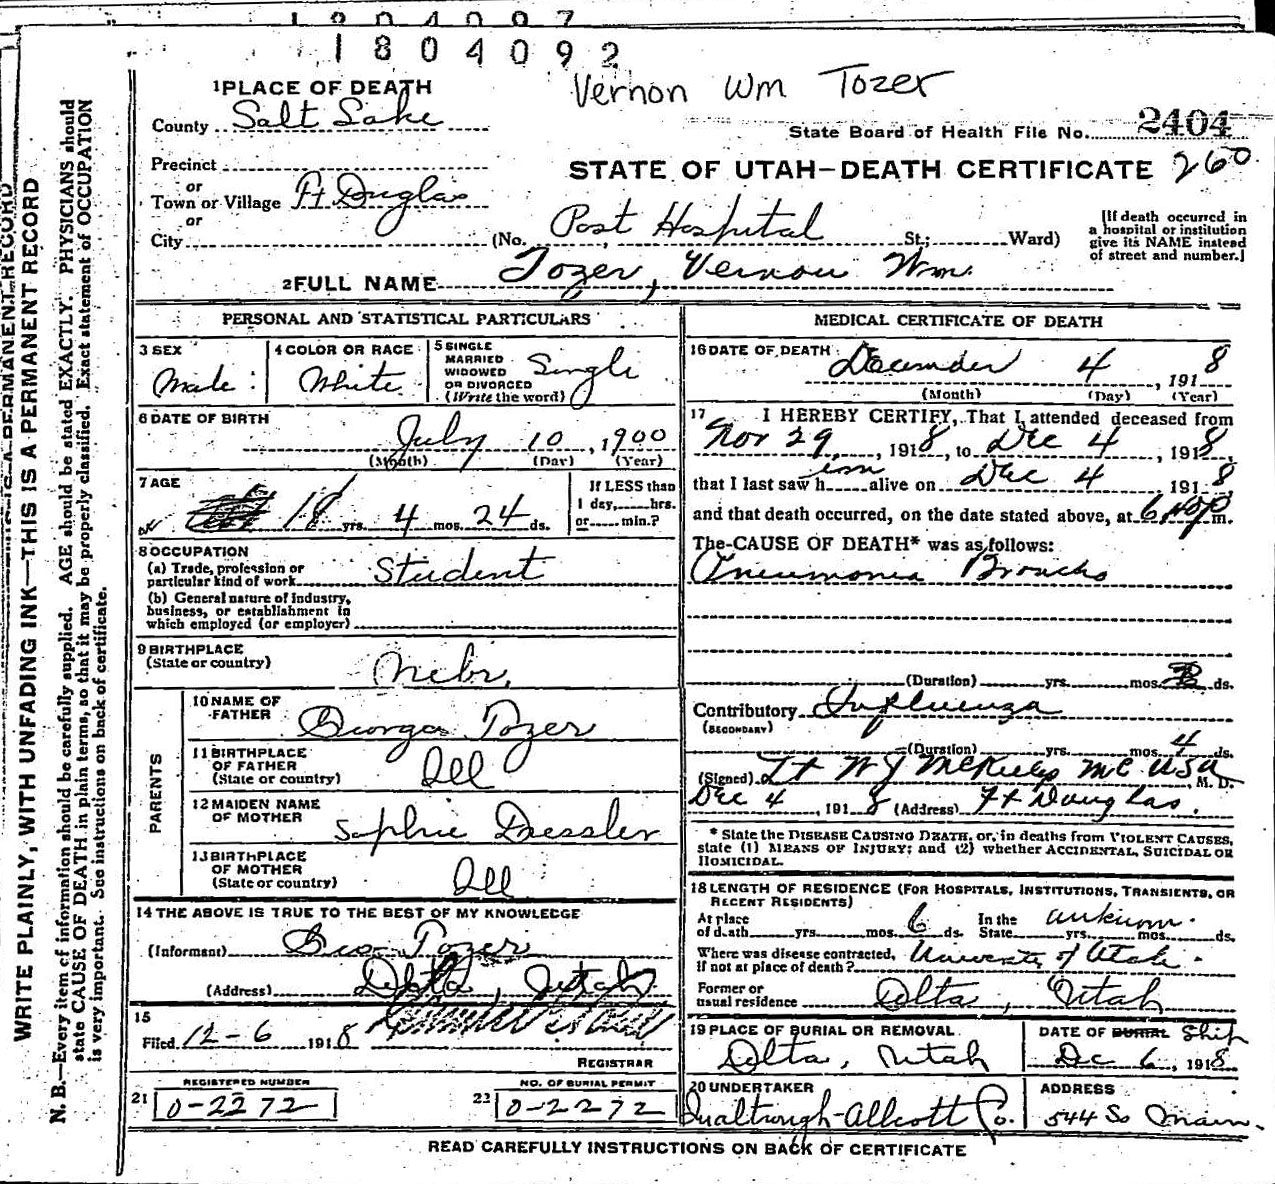 1804092
Vernon Wm Tozer
1 PLACE OF DEATH
County Salt Lake
State Board of Health File No. 2404
Precinct
STATE OF UTAH—DEATH CERTIFICATE 260
or
Town or Village Ft Duglas
or
City (No. Post Hospital St.; Ward)
[If death occurred in
a hospital or institution
give its NAME instead
of street and number.]
2 FULL NAME Tozer, Vernon Wm.
PERSONAL AND STATISTICAL PARTICULARS
3 SEX
Male
4 COLOR OR RACE
White
5 SINGLE
MARRIED
WIDOWED
OR DIVORCED
(Write the word)
Single
6 DATE OF BIRTH
July 10, 1900
(Month) (Day) (Year)
7 AGE
18 yrs. 4 mos. 24 ds.
If LESS than
1 day, hrs.
or min.?
8 OCCUPATION
(a) Trade, profession or
particular kind of work Student
(b) General nature of industry,
business, or establishment in
which employed (or employer)
9 BIRTHPLACE
(State or country) Nebr.
PARENTS
10 NAME OF
FATHER George Tozer
11 BIRTHPLACE
OF FATHER
(State or country) Ill
12 MAIDEN NAME
OF MOTHER Sophie Dressler
13 BIRTHPLACE
OF MOTHER
(State or country) Ill
14 THE ABOVE IS TRUE TO THE BEST OF MY KNOWLEDGE
(Informant) Geo Tozer
(Address) Delta, Utah
15
Filed 12-6 1918
REGISTRAR
REGISTERED NUMBER
21 0-2272
NO. OF BURIAL PERMIT
22 0-2272
MEDICAL CERTIFICATE OF DEATH
16 DATE OF DEATH December 4, 1918
(Month) (Day) (Year)
17 I HEREBY CERTIFY, That I attended deceased from
Nov 29, 1918, to Dec 4, 1918,
that I last saw h im alive on Dec 4 1918
and that death occurred, on the date stated above, at 6 m.
The CAUSE OF DEATH* was as follows:
Pneumonia Broncho
(Duration) yrs. mos. ds.
Contributory Influenza
(SECONDARY)
(Duration) yrs. mos. 4 ds.
(Signed) Lt W J MC USA, M. D.
Dec 4, 1918 (Address) Ft Douglas.
* State the DISEASE CAUSING DEATH, or, in deaths from VIOLENT CAUSES,
state (1) MEANS OF INJURY; and (2) whether ACCIDENTAL, SUICIDAL OR
HOMICIDAL.
18 LENGTH OF RESIDENCE (FOR HOSPITALS, INSTITUTIONS, TRANSIENTS, OR
RECENT RESIDENTS)
At place
of death yrs. mos. 6 ds.
In the
State yrs. mos. ds. unknown
Where was disease contracted,
if not at place of death? University of Utah.
Former or
usual residence Delta, Utah
19 PLACE OF BURIAL OR REMOVAL
Delta, Utah
DATE OF BURIAL Ship
Dec 6, 1918
20 UNDERTAKER
Qualtrough-Allcott Co.
ADDRESS
544 So Main.
READ CAREFULLY INSTRUCTIONS ON BACK OF CERTIFICATE
WRITE PLAINLY, WITH UNFADING INK—THIS IS A PERMANENT RECORD
N. B.—Every item of information should be carefully supplied. AGE should be stated EXACTLY. PHYSICIANS should
state CAUSE OF DEATH in plain terms, so that it may be properly classified. Exact statement of OCCUPATION
is very important. See instructions on back of certificate.